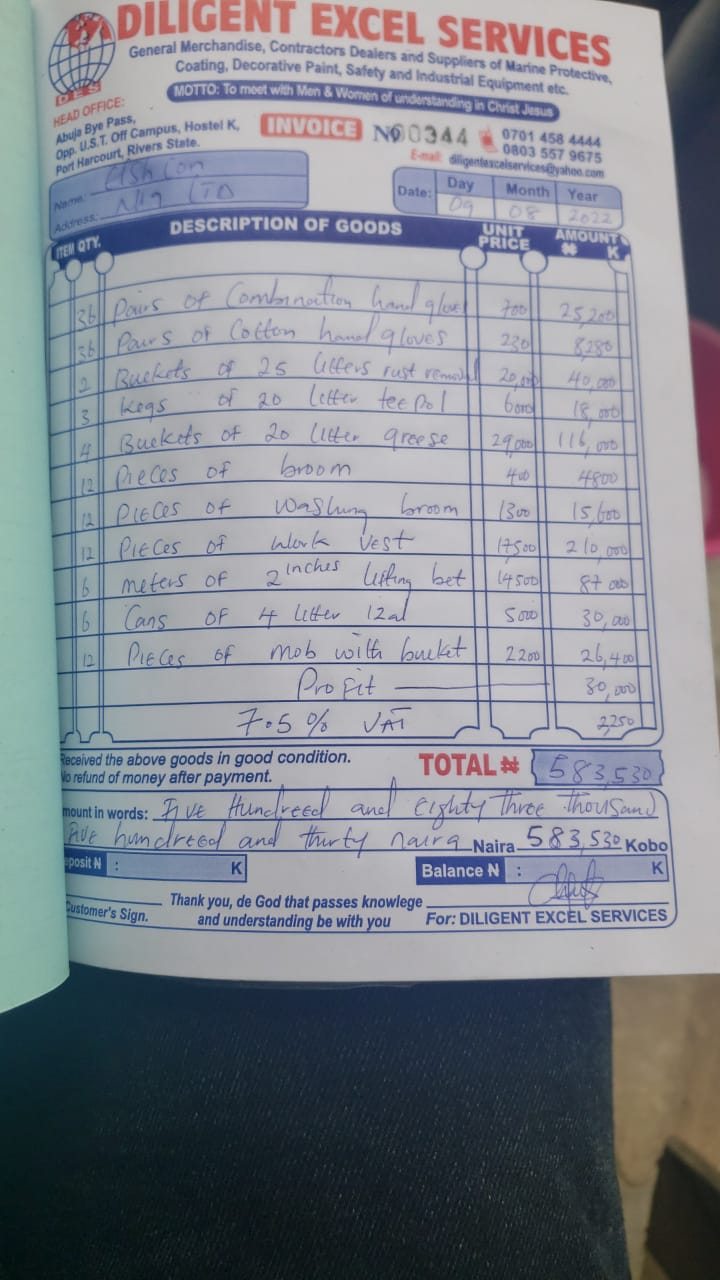 DILIGENT EXCEL SERVICES
General Merchandise, Contractors Dealers and Suppliers of Marine Protective,
Coating, Decorative Paint, Safety and Industrial Equipment etc.
MOTTO: To meet with Men & Women of understanding in Christ Jesus
DES
HEAD OFFICE:
Abuja Bye Pass,
Opp. U.S.T. Off Campus, Hostel K,
Port Harcourt, Rivers State.
INVOICE No 00344
0701 458 4444
0803 557 9675
E-mail: diligentexcelservices@yahoo.com
Name:
Address: Nig LTD
Date: Day Month Year
09 08 2022
ITEM QTY. DESCRIPTION OF GOODS UNIT PRICE AMOUNT ₦ K
36 Pairs of Combination hand gloves 700 25,200
36 Pairs of Cotton hand gloves 230 8,280
2 Buckets of 25 litters rust removal 20,000 40,000
3 kegs of 20 letter teepol 6000 18,000
4 Buckets of 20 litter greese 29,000 116,000
12 Pieces of broom 400 4800
12 Pieces of washing broom 1300 15,600
12 Pieces of Work Vest 17500 210,000
6 meters of 2 inches lifting bet 14500 87000
6 Cans of 4 litter izal 5000 30,000
12 Pieces of mob with bucket 2200 26,400
Profit 30,000
7.5% VAT 2,250
Received the above goods in good condition.
No refund of money after payment.
TOTAL ₦ 583,530
mount in words: Five Hundreed and eighty three thousand
five hundreed and thirty naira Naira 583,530 Kobo
eposit N : K Balance N : K
Customer's Sign.
Thank you, de God that passes knowlege
and understanding be with you
For: DILIGENT EXCEL SERVICES